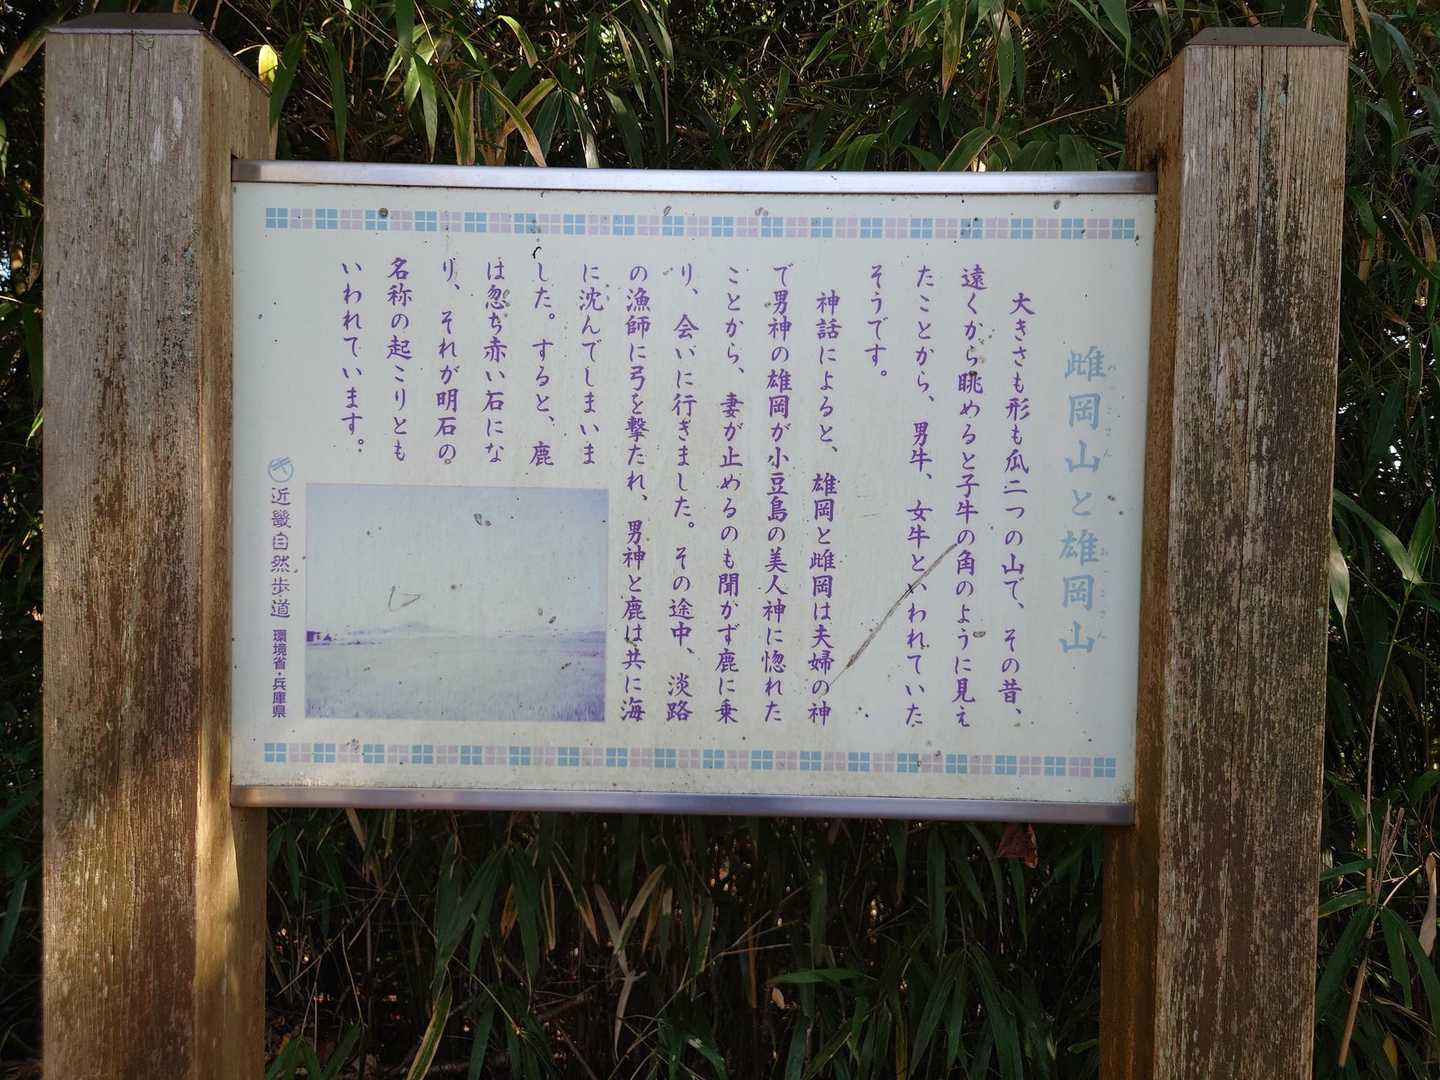 雌岡山と雄岡山
めっこさん
おっこさん
大きさも形も瓜二つの山で、その昔、
遠くから眺めると子牛の角のように見え
たことから、男牛、女牛といわれていた
そうです。
神話によると、雄岡と雌岡は夫婦の神
で男神の雄岡が小豆島の美人神に惚れた
ことから、妻が止めるのも聞かず鹿に乗
り、会いに行ぎました。その途中、淡路
の漁師に弓を撃たれ、男神と鹿は共に海
に沈んでしまいま
した。すると、鹿
は忽ち赤い石にな
り、それが明石の
名称の起こりとも
いわれています。
近畿自然歩道 環境省・兵庫県